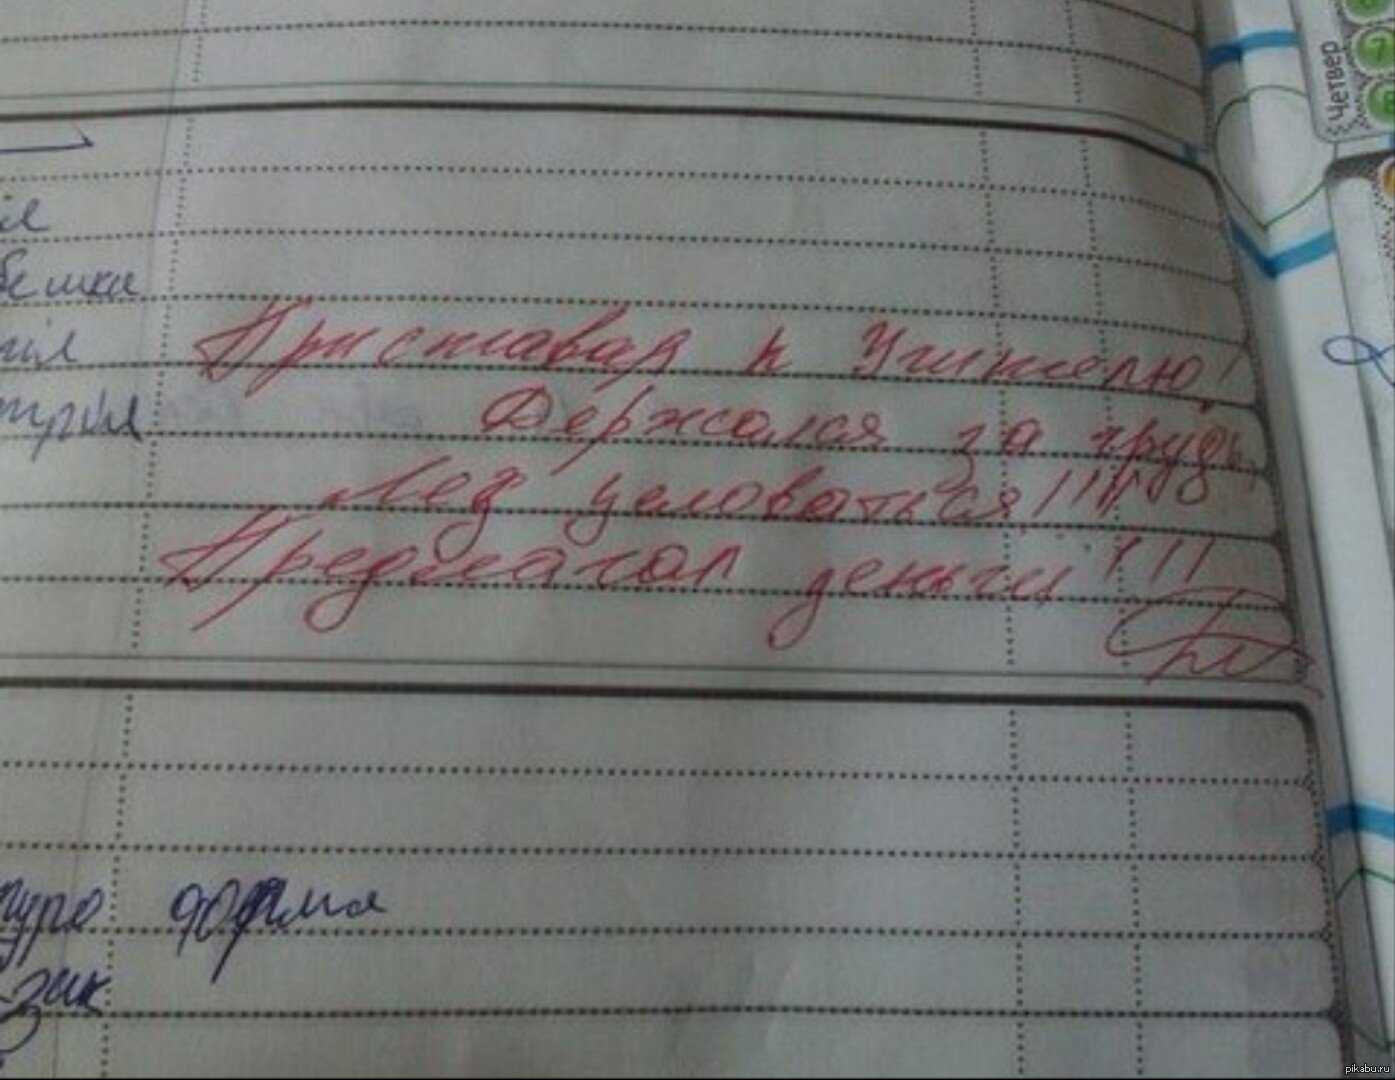 Четвер
ія
бешки
гія
трія
Приставал к Учителю!
Держался за грудь
Лез целоваться!!!!!
Предлагал деньги!!!
тура форма
зик
pikabu.ru